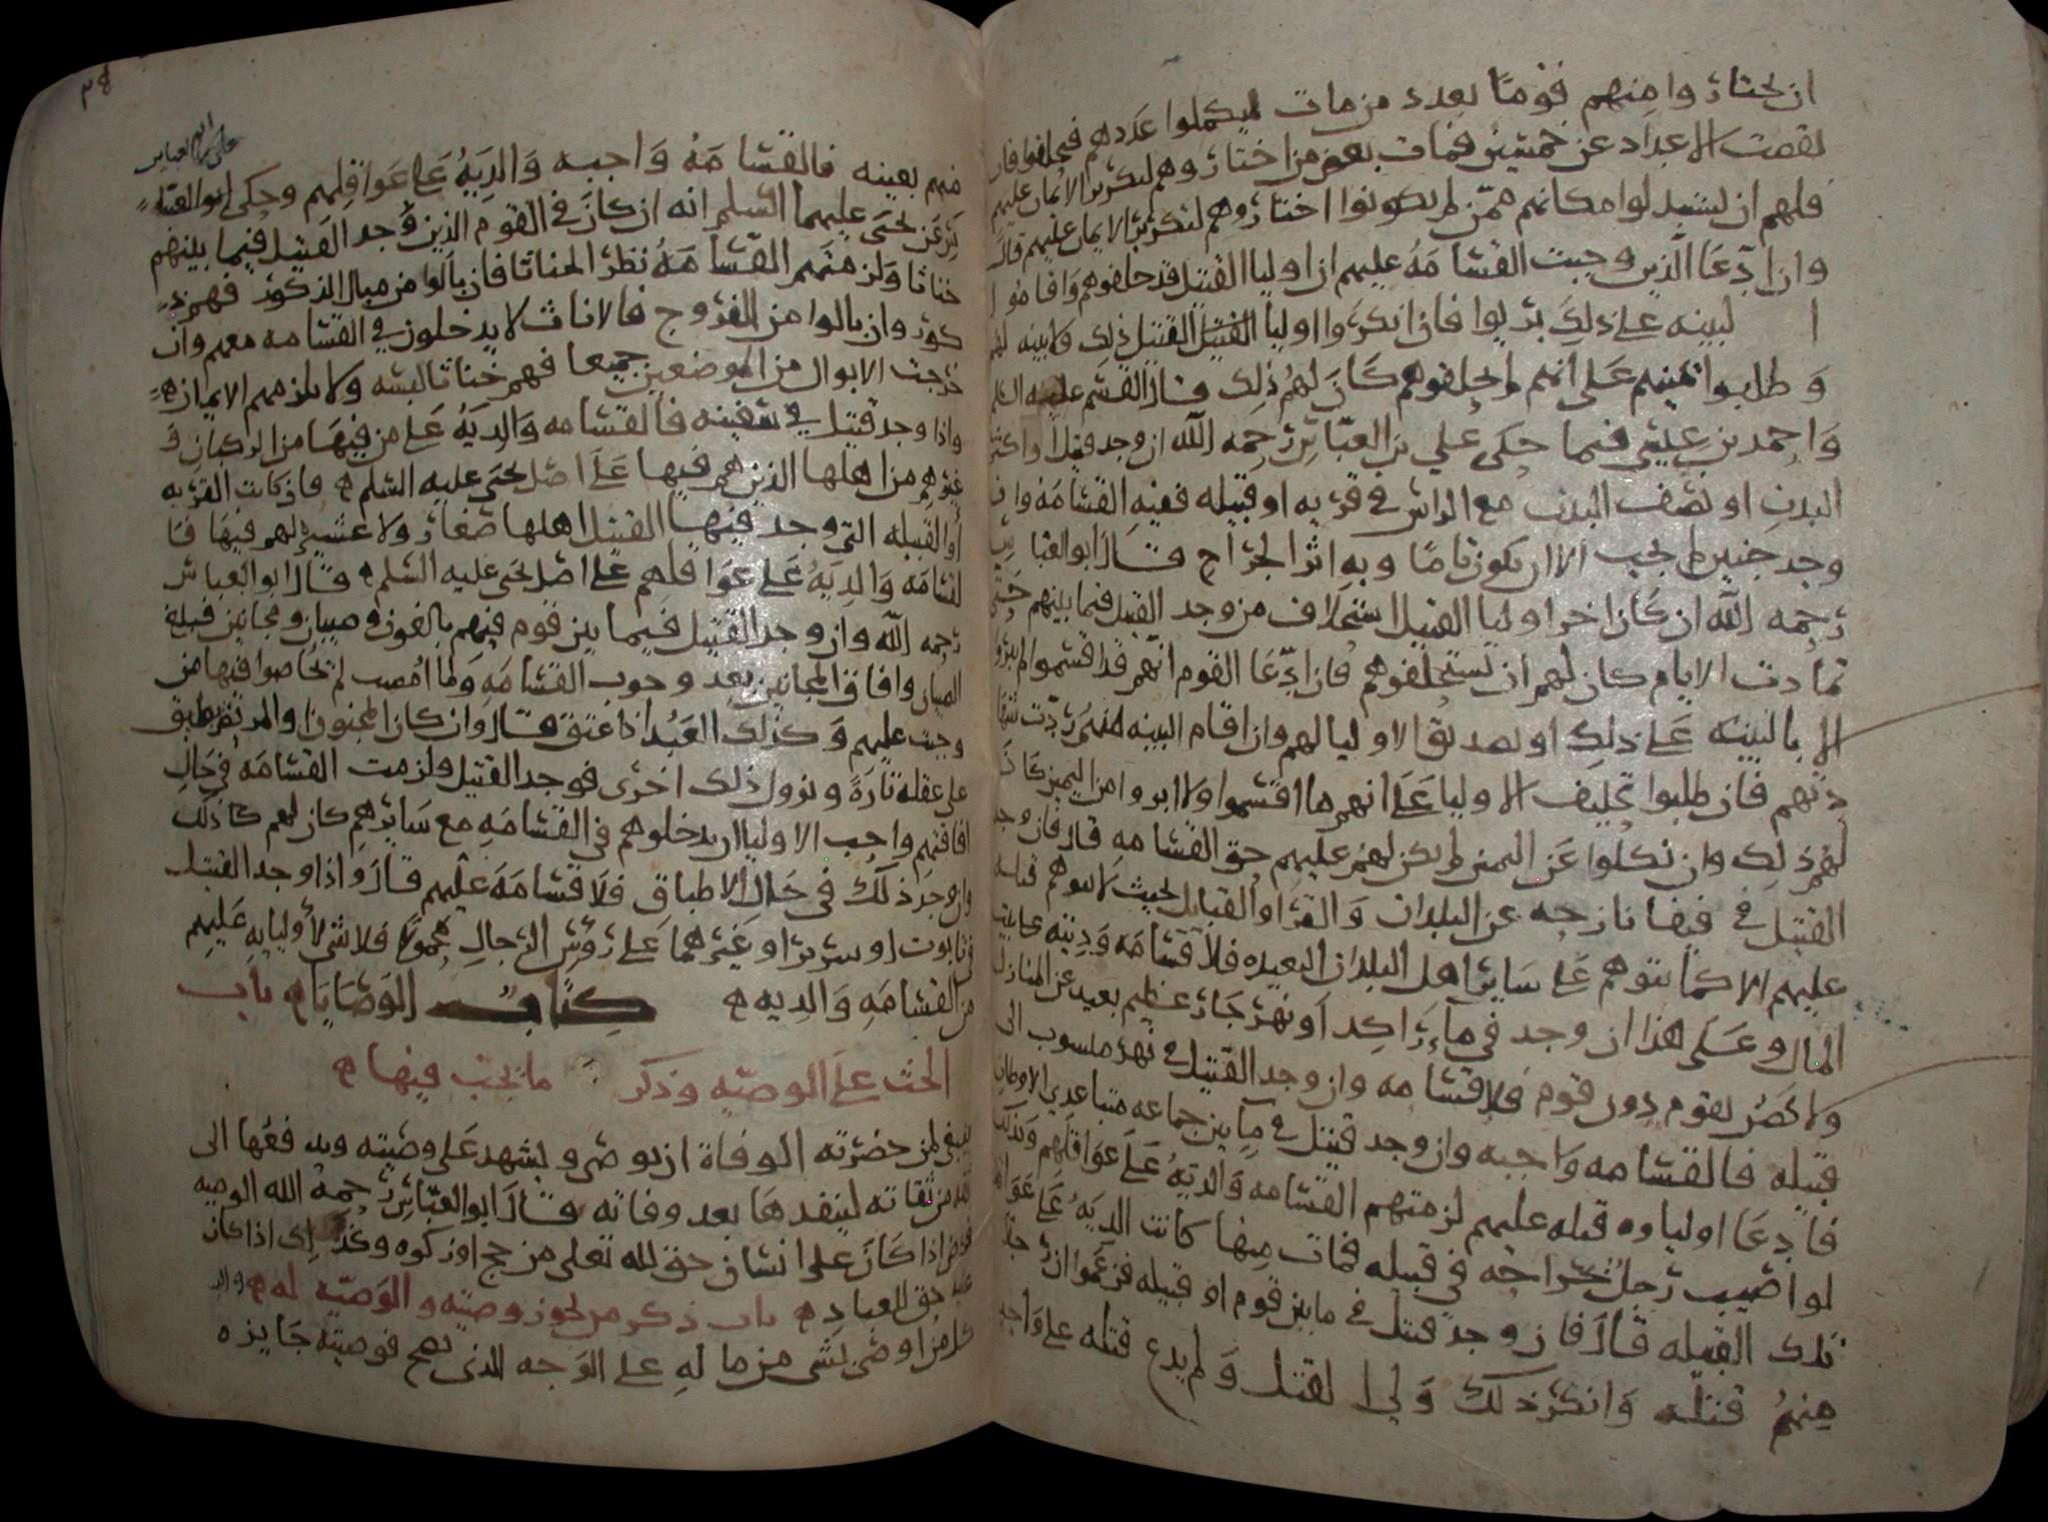 ان يختاروا منهم قوما بعدد من مات ليكملوا عددهم فيحلفوا فان
نقصت الاعداد عن خمسين فمات بعض من اختاروهم لتكرير الايمان عليهم
فلهم ان يستبدلوا مكانهم ممن لم يكونوا اختاروهم لتكرير الايمان عليهم قال
وان ادعا الذين وجبت القسامه عليهم ان اوليا القتيل قد حلفوهم واقاموا
البينه على ذلك بريوا فان انكروا اوليا القتيل القتيل ذلك ولا بينه لهم
وطلبوا يمينهم على انهم لم يحلفوهم كان لهم ذلك قال القسم عليه السلم
واحمد بن عيسى فيما حكى علي بن العباس رحمه الله ان وجد قتيلا واكثر
البدن او نصف البدن مع الراس في قريه او قبيله ففيه القسامه وان
وجد جنين لم يجب الا ان يكون تاما وبه اثر الجراح قال ابو العباس
رحمه الله ان كان اخر اوليا القتيل استحلاف من وجد القتيل فيما بينهم حتى
تمادت الايام كان لهم ان يستحلفوهم فان ادعا القوم انهم قد اقسموا لم يبروا
الا بالبينه على ذلك او تصديق الاوليا لهم وان اقام البينه منهم ردت
ديتهم فان طلبوا تحليف الاوليا على انهم ما اقسموا ولا ابروا من اليمين كان
لهم ذلك وان نكلوا عن اليمين لم يكن لهم عليهم حق القسامه قال فان وجد
القتيل في فيفا نازحه عن البلدان والقرا والقبايل بحيث لا يتوهم قتله
عليهم الا كما يتوهم على ساير اهل البلدان البعيده فلا قسامه وديته على بيت
المال وعلى هذا ان وجد في ماء راكد او نهر جار عظيم بعيد عن المنازل
ولا يختص بقوم دون قوم فلا قسامه وان وجد القتيل في نهر منسوب الى
قبيله فالقسامه واجبه وان وجد قتيل في ما بين جماعه متباعدي الاوطان
فادعا اولياوه قتله عليهم لزمتهم القسامه والديه على عواقلهم وكذلك
لو اصيب رجل بجراحه في قبيله فمات منها كانت الديه على عواقل
تلك القبيله قال فان وجد قتيل في ما بين قوم او قبيله فزعموا ان رجلا
منهم قتله وانكر ذلك ولي القتيل ولم يدع قتله على واحد
٣٤
على بن العباس
منهم بعينه فالقسامه واجبه والديه على عواقلهم وحكى ابو القسم
عن يحيى عليهما السلم انه ان كان في القوم الذين وجد القتيل فيما بينهم
خناثا ولزمتهم القسامه نظر الخناثا فان بالوا من مبال الذكور فهم ذ
كور وان بالوا من الفروج فالاناث لا يدخلون في القسامه معهم وان
خرجت الابوال من الموضعين جميعا فهم خناثا لبسه ولا يلزمهم الايمان
واذا وجد قتيل في سفينه فالقسامه والديه على من فيها من الركبان و
غيرهم من اهلها الذين هم فيها على اصل يحيى عليه السلم فان كانت القريه
او القبيله التي وجد فيها القتيل اهلها صغار ولا عشيره لهم فيها فا
لقسامه والديه على عواقلهم على اصل يحيى عليه السلم قال ابو العباس
رحمه الله وان وجد القتيل فيما بين قوم فيهم بالغون وصبيان ومجانين فبلغ
الصبيان وافاق المجانين بعد وجوب القسامه ولما امضيت لم يخاصوا فيها من
وجبت عليهم وكذلك العبد اذا عتق قال وان كان المجنون والمريض يطبق
على عقله تارة ويزول ذلك اخرى فوجد القتيل ولزمت القسامه في حال
افاقتهم واحب الاوليا ان يدخلوهم في القسامه مع سايرهم كان لهم كذلك
وان وجد ذلك في حال الاطباق فلا قسامه عليهم قال واذا وجد القتيل
في تابوت او سرير او غيرهما على رؤس الرجال محمولا فلا شي لاوليايه عليهم
من القسامه والديه كتاب الوصايا باب
الحث على الوصيه وذكر ما يجب فيها
ينبغي لمن حضرته الوفاة ان يوصي ويشهد على وصيته ويدفعها الى
ثقه من ثقاته لينفدها بعد وفاته قال ابو العباس رحمه الله الوصيه
فرض اذا كان على انسان حق لله تعلى من حج او زكوه وكذلك اذا كان
عليه حق للعباد باب ذكر من تجوز وصيته والوصيه له
كل من اوصى بشي من ماله على الوجه الذي يصح فوصيته جايزه